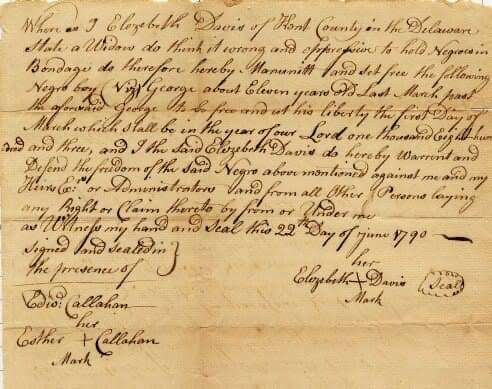 Where as I Elozebeth Davis of Kent County in the Delaware
State a Widow do think it wrong and oppressive to hold Negroes in
Bondage do therefore hereby Manumitt and set free the following
Negro boy (Viz) George about Eleven years Old Last March past
the aforesaid George to be free and at his liberty the first Day of
March which shall be in the year of our Lord one thousand Eight hun
dred and three, and I the said Elizebeth Davis do hereby Warrent and
Defend the freedom of the said Negro above mentioned against me and my
Heirs Ex: or Administrators and from all Other Persons laying
any Right or Claim thereto by from or Under me
as Witness my hand and Seal this 22th Day of June 1790
signed and sealed in
the presence of
her
Elozebeth + Davis Seal
Mark
Edwd: Callahan
her
Esther + Callahan
Mark